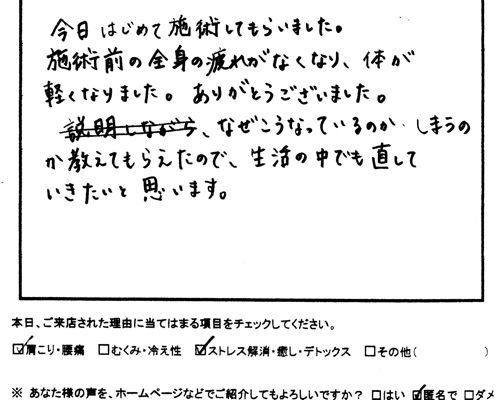 今日はじめて施術してもらいました。
施術前の全身の疲れがなくなり、体が
軽くなりました。ありがとうございました。
説明しながら、なぜこうなっているのか・しまうの
か教えてもらえたので、生活の中でも直して
いきたいと思います。
本日、ご来店された理由に当てはまる項目をチェックしてください。
☑肩こり・腰痛 □むくみ・冷え性 ☑ストレス解消・癒し・デトックス □その他( )
※ あなた様の声を、ホームページなどでご紹介してもよろしいですか? □はい ☑匿名で □ダメ